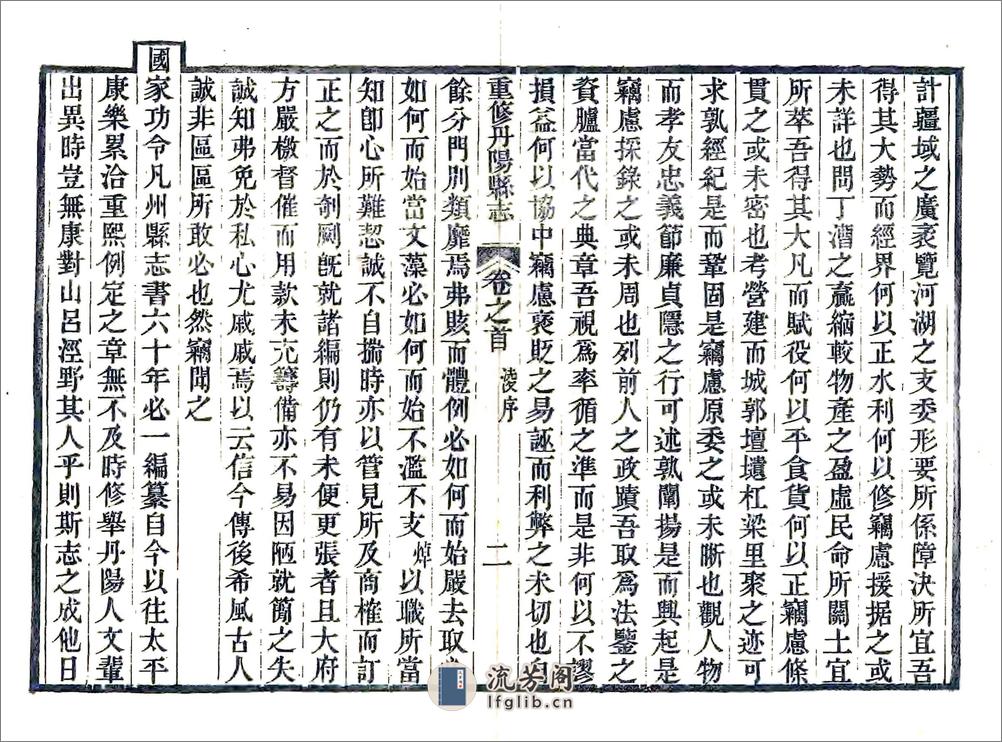 計疆域之廣袤覽河湖之支委形要所係障決所宜吾
得其大勢而經界何以正水利何以修竊慮援據之或
未詳也問丁漕之贏縮較物產之盈虛民命所關土宜
所萃吾得其大凡而賦役何以平食貨何以正竊慮條
貫之或未密也考營建而城郭壇壝杠梁里聚之迹可
求孰經紀是而鞏固是竊慮原委之或未晰也觀人物
而孝友忠義節廉貞隱之行可述孰闡揚是而興起是
竊慮採錄之或未周也列前人之政蹟吾取為法鑒之
資臚當代之典章吾視為率循之準而是非何以不謬
損益何以協中竊慮褒貶之易誣而利弊之未切也自
重修丹陽縣志 卷之首 淩序 二
餘分門別類靡焉弗賅而體例必如何而始嚴去取
如何而始當文藻必如何而始不濫不支焯以職所當
知卽心所難恝誠不自揣時亦以管見所及商榷而訂
正之而於剞劂旣就諸編則仍有未便更張者且大府
方嚴檄督催而用款未充籌備亦不易因陋就簡之失
誠知弗免於私心尤戚戚焉以云信今傳後希風古人
誠非區區所敢必也然竊聞之
國家功令凡州縣志書六十年必一編纂自今以往太平
康樂累洽重熙例定之章無不及時修舉丹陽人文輩
出異時豈無康對山呂涇野其人乎則斯志之成他日
流芳阁
lfglib.cn